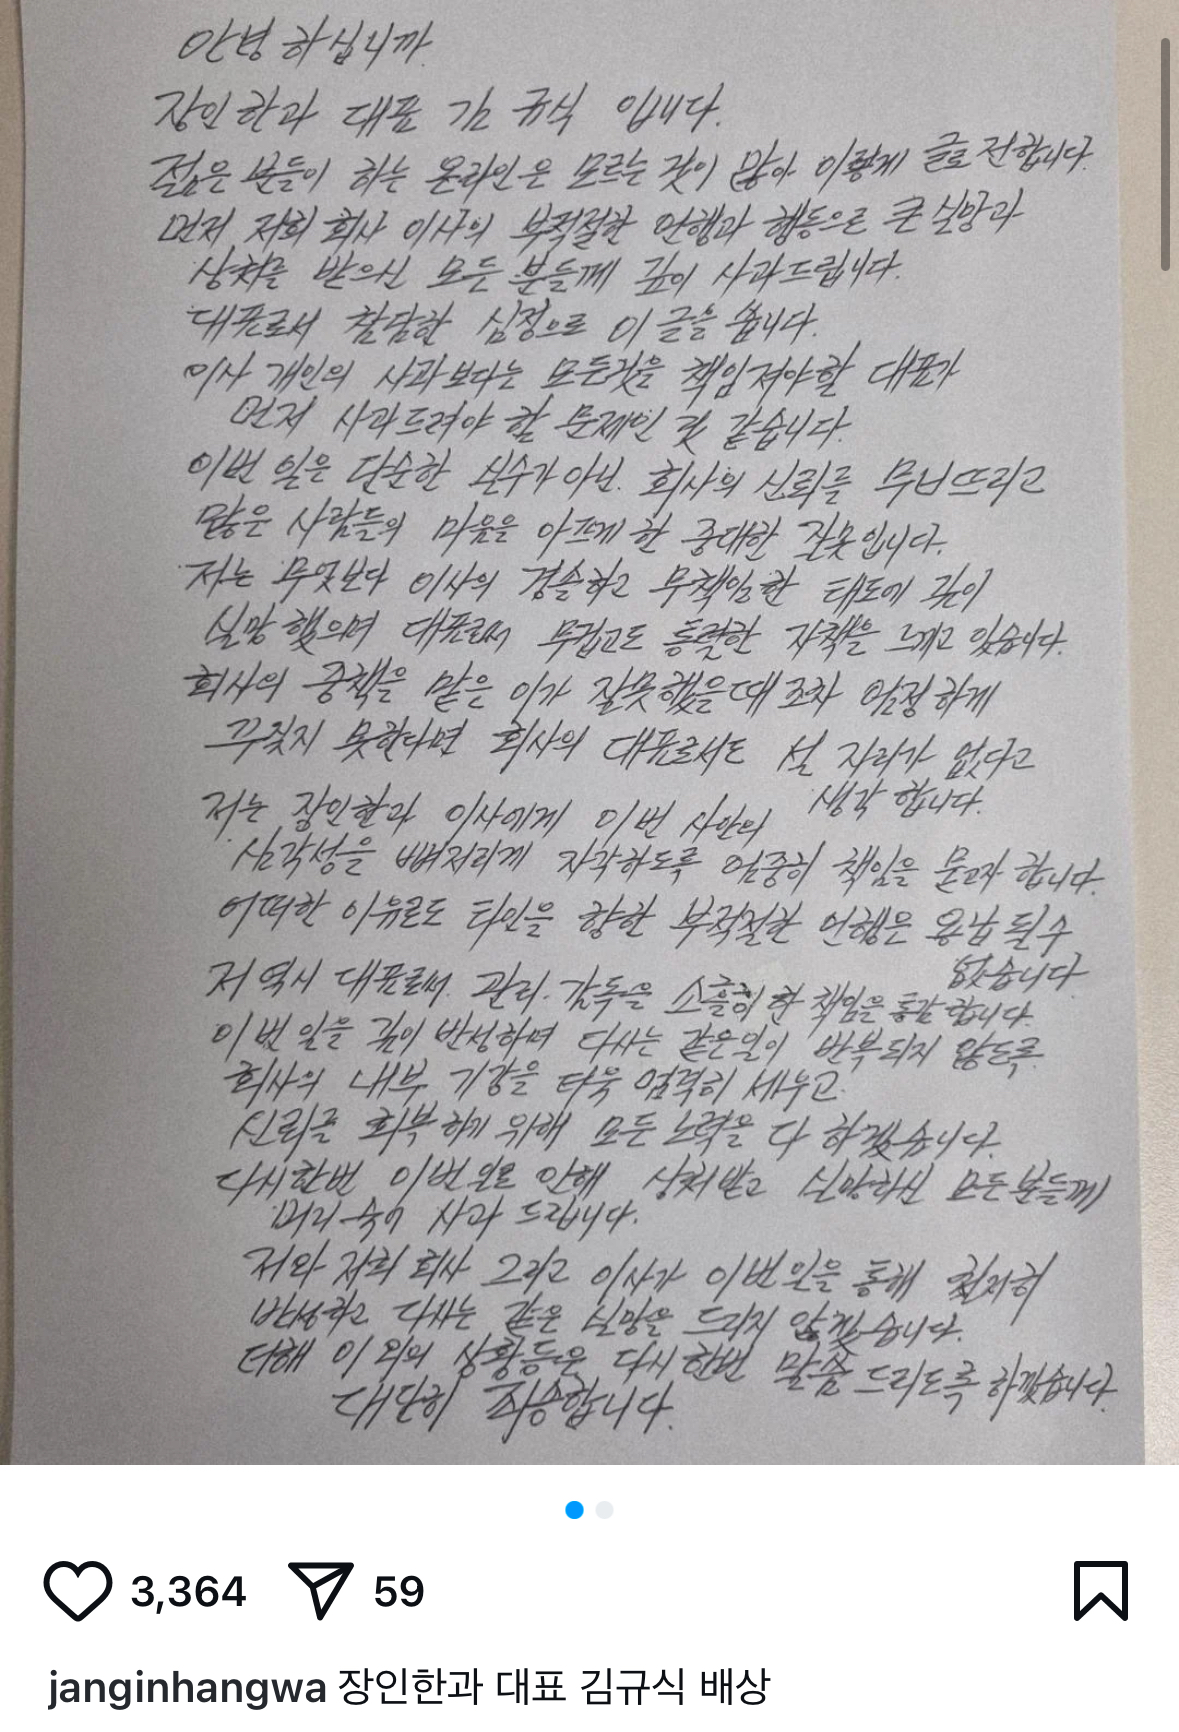 안녕하십니까.
장인한과 대표 김 규식 입니다.
젊은 분들이 하는 온라인은 모르는 것이 많아 이렇게 글로 전합니다.
먼저 저희 회사 이사의 부적절한 언행과 행동으로 큰 실망과
상처를 받으신 모든 분들께 깊이 사과드립니다.
대표로서 참담한 심정으로 이 글을 씁니다.
이사 개인의 사과보다는 모든것을 책임져야할 대표가
먼저 사과드려야 할 문제인 것 같습니다.
이번 일은 단순한 실수가 아닌. 회사의 신뢰를 무너뜨리고
많은 사람들의 마음을 아프게 한 중대한 잘못입니다.
저는 무엇보다 이사의 경솔하고 무책임한 태도에 깊이
실망했으며 대표로써 무겁고도 통렬한 자책을 느끼고 있습니다.
회사의 중책을 맡은 이가 잘못했을때 조차 엄정하게
꾸짖지 못한다면 회사의 대표로서도 설 자리가 없다고
생각 합니다.
저는 장인한과 이사에게 이번 사안의
심각성을 뼈저리게 자각하도록 엄중히 책임을 묻고자 합니다.
어떠한 이유로도 타인을 향한 부적절한 언행은 용납 될수
없습니다
저 역시 대표로써. 관리. 감독을 소홀히 한 책임을 통감 합니다.
이번 일을 깊이 반성하며 다시는 같은일이 반복되지 않도록
회사의 내부 기강을 더욱 엄격히 세우고.
신뢰를 회복하기 위해 모든 노력을 다 하겠습니다.
다시한번 이번 일로 인해 상처받고 실망하신 모든분들께
머리 숙여 사과 드립니다.
저와 저희 회사 그리고 이사가 이번 일을 통해 철저히
반성하고 다시는 같은 실망을 드리지 않겠습니다.
더해 이 외의 상황등은 다시 한번 말씀 드리도록 하겠습니다.
대단히 죄송합니다.
3,364 59
janginhangwa 장인한과 대표 김규식 배상